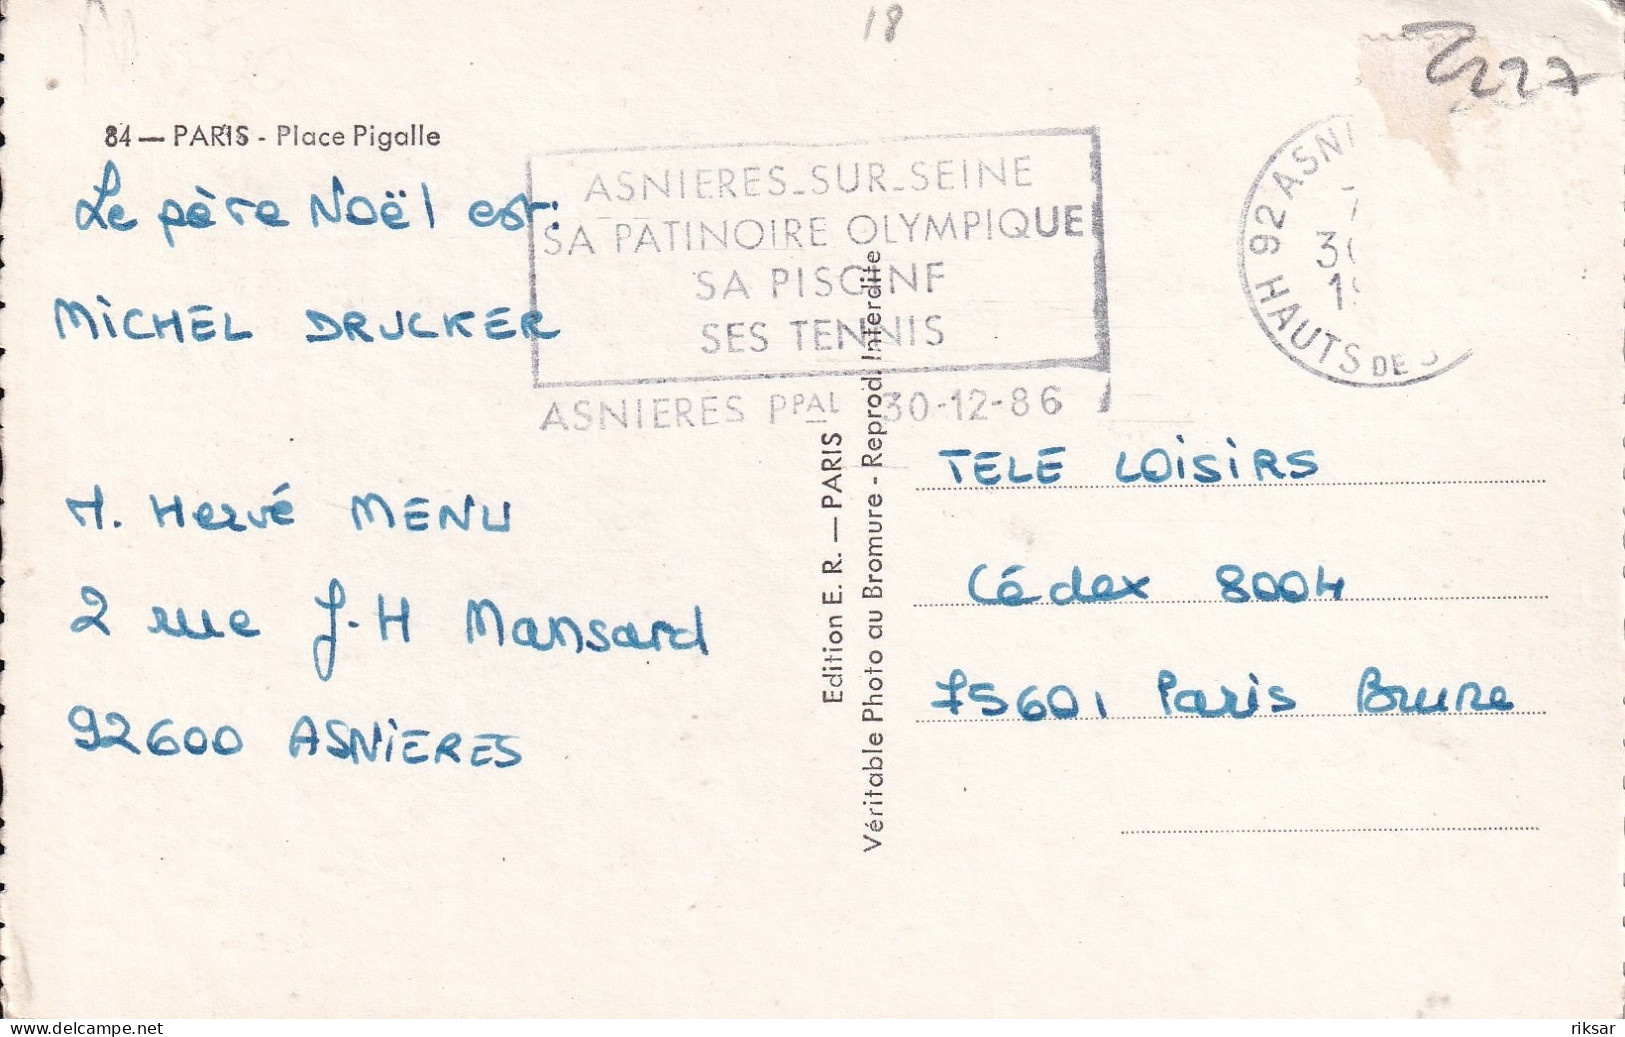 18
227
84 — PARIS - Place Pigalle
Le père Noël est:
MICHEL DRUCKER
M. Hervé MENU
2 rue J-H Mansard
92600 ASNIERES
ASNIERES-SUR-SEINE
SA PATINOIRE OLYMPIQUE
SA PISCINE
SES TENNIS
ASNIERES PPAL 30-12-86
92 ASNI
HAUTS DE S
Edition E. R. — PARIS
Véritable Photo au Bromure - Reprod. Interdite
TELE LOISIRS
Cédex 8004
75601 Paris Brune
www.delcampe.net
riksar